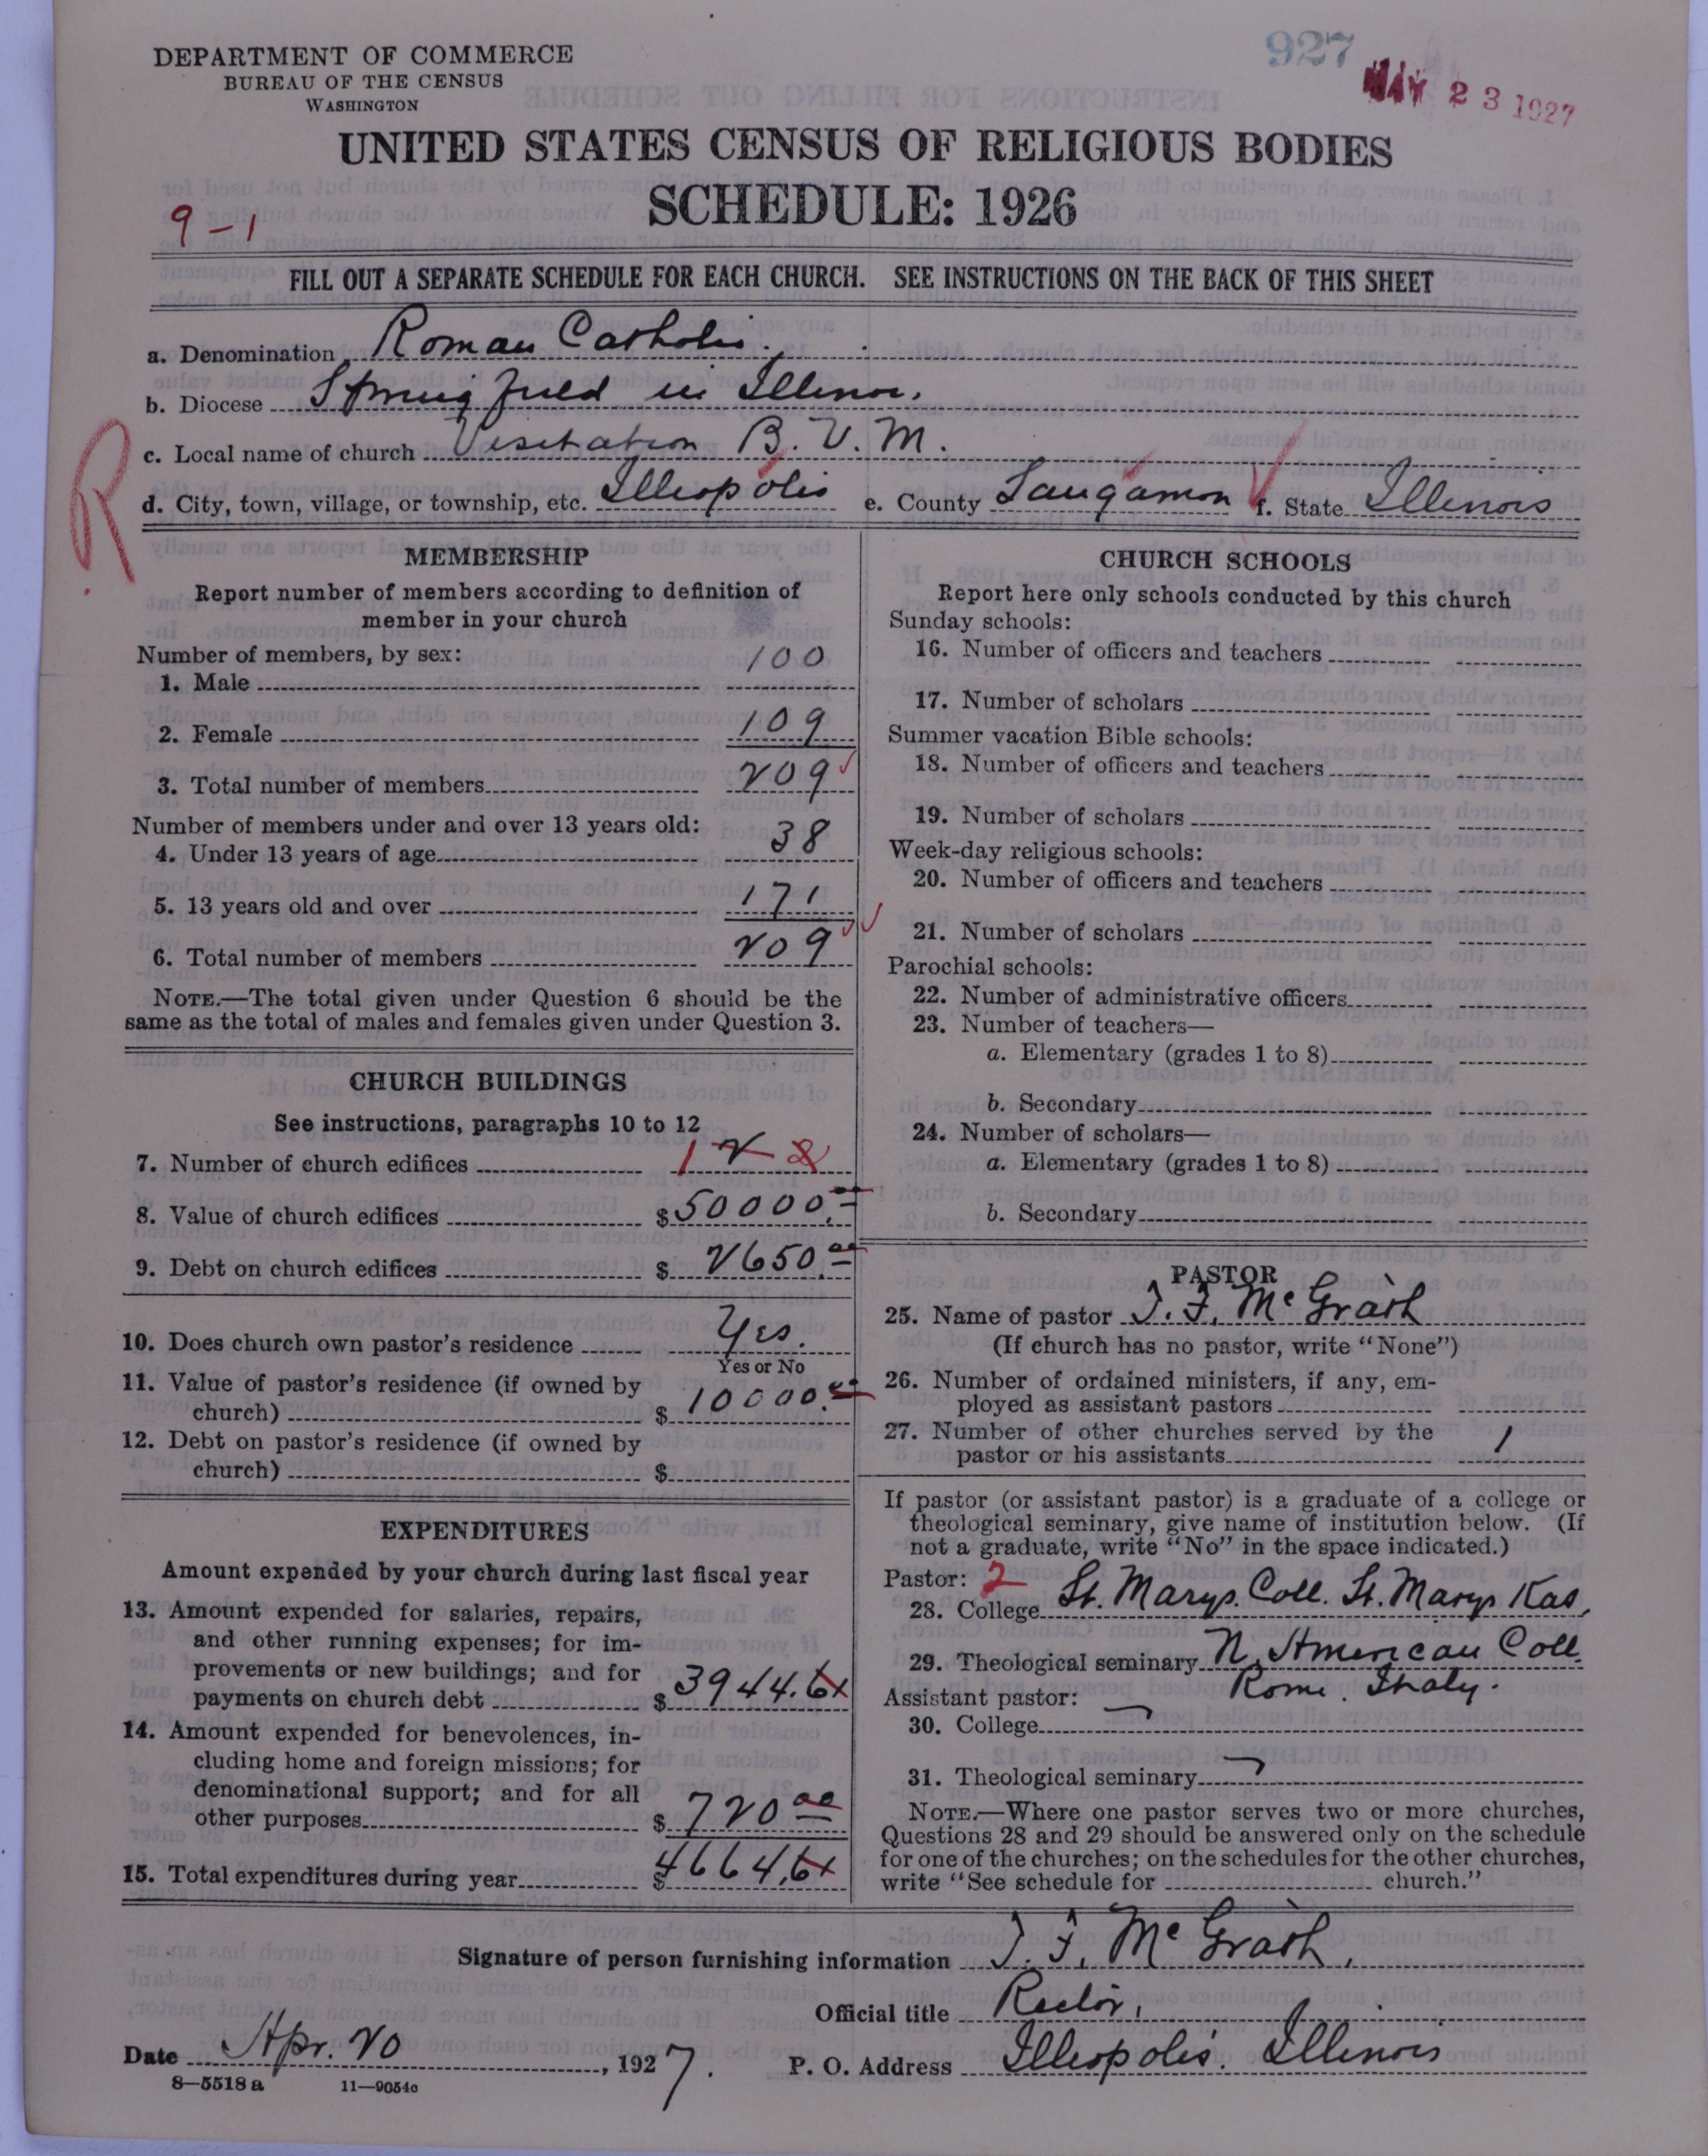 DEPARTMENT OF COMMERCE
BUREAU OF THE CENSUS
WASHINGTON
927
MAY 23 1927
UNITED STATES CENSUS OF RELIGIOUS BODIES
SCHEDULE: 1926
9-1
FILL OUT A SEPARATE SCHEDULE FOR EACH CHURCH. SEE INSTRUCTIONS ON THE BACK OF THIS SHEET
a. Denomination Roman Catholic.
b. Diocese Springfield in Illinois.
R
c. Local name of church Visitation B.V.M.
d. City, town, village, or township, etc. Illiopolis e. County Sangamon f. State Illinois
MEMBERSHIP
Report number of members according to definition of
member in your church
Number of members, by sex:
1. Male 100
2. Female 109
3. Total number of members 209
Number of members under and over 13 years old:
4. Under 13 years of age 38
5. 13 years old and over 171
6. Total number of members 209
NOTE.—The total given under Question 6 should be the
same as the total of males and females given under Question 3.
CHURCH BUILDINGS
See instructions, paragraphs 10 to 12
7. Number of church edifices 1 2 2
8. Value of church edifices $50000.00
9. Debt on church edifices $2650.00
10. Does church own pastor's residence Yes.
Yes or No
11. Value of pastor's residence (if owned by
church) $10000.00
12. Debt on pastor's residence (if owned by
church) $
EXPENDITURES
Amount expended by your church during last fiscal year
13. Amount expended for salaries, repairs,
and other running expenses; for im-
provements or new buildings; and for
payments on church debt $3944.61
14. Amount expended for benevolences, in-
cluding home and foreign missions; for
denominational support; and for all
other purposes $720.00
15. Total expenditures during year $4664.61
CHURCH SCHOOLS
Report here only schools conducted by this church
Sunday schools:
16. Number of officers and teachers
17. Number of scholars
Summer vacation Bible schools:
18. Number of officers and teachers
19. Number of scholars
Week-day religious schools:
20. Number of officers and teachers
21. Number of scholars
Parochial schools:
22. Number of administrative officers
23. Number of teachers—
a. Elementary (grades 1 to 8)
b. Secondary
24. Number of scholars—
a. Elementary (grades 1 to 8)
b. Secondary
PASTOR
25. Name of pastor J. F. McGrath
(If church has no pastor, write "None")
26. Number of ordained ministers, if any, em-
ployed as assistant pastors
27. Number of other churches served by the
pastor or his assistants 1
If pastor (or assistant pastor) is a graduate of a college or
theological seminary, give name of institution below. (If
not a graduate, write "No" in the space indicated.)
Pastor: 2
28. College St. Marys. Coll. St. Marys Kas.
29. Theological seminary N. American Coll.
Rome. Italy.
Assistant pastor:
30. College
31. Theological seminary
NOTE.—Where one pastor serves two or more churches,
Questions 28 and 29 should be answered only on the schedule
for one of the churches; on the schedules for the other churches,
write "See schedule for church."
Signature of person furnishing information J. F. McGrath.
Official title Rector.
Date Apr. 20, 1927.
P. O. Address Illiopolis. Illinois
8-5518 a 11-9054c